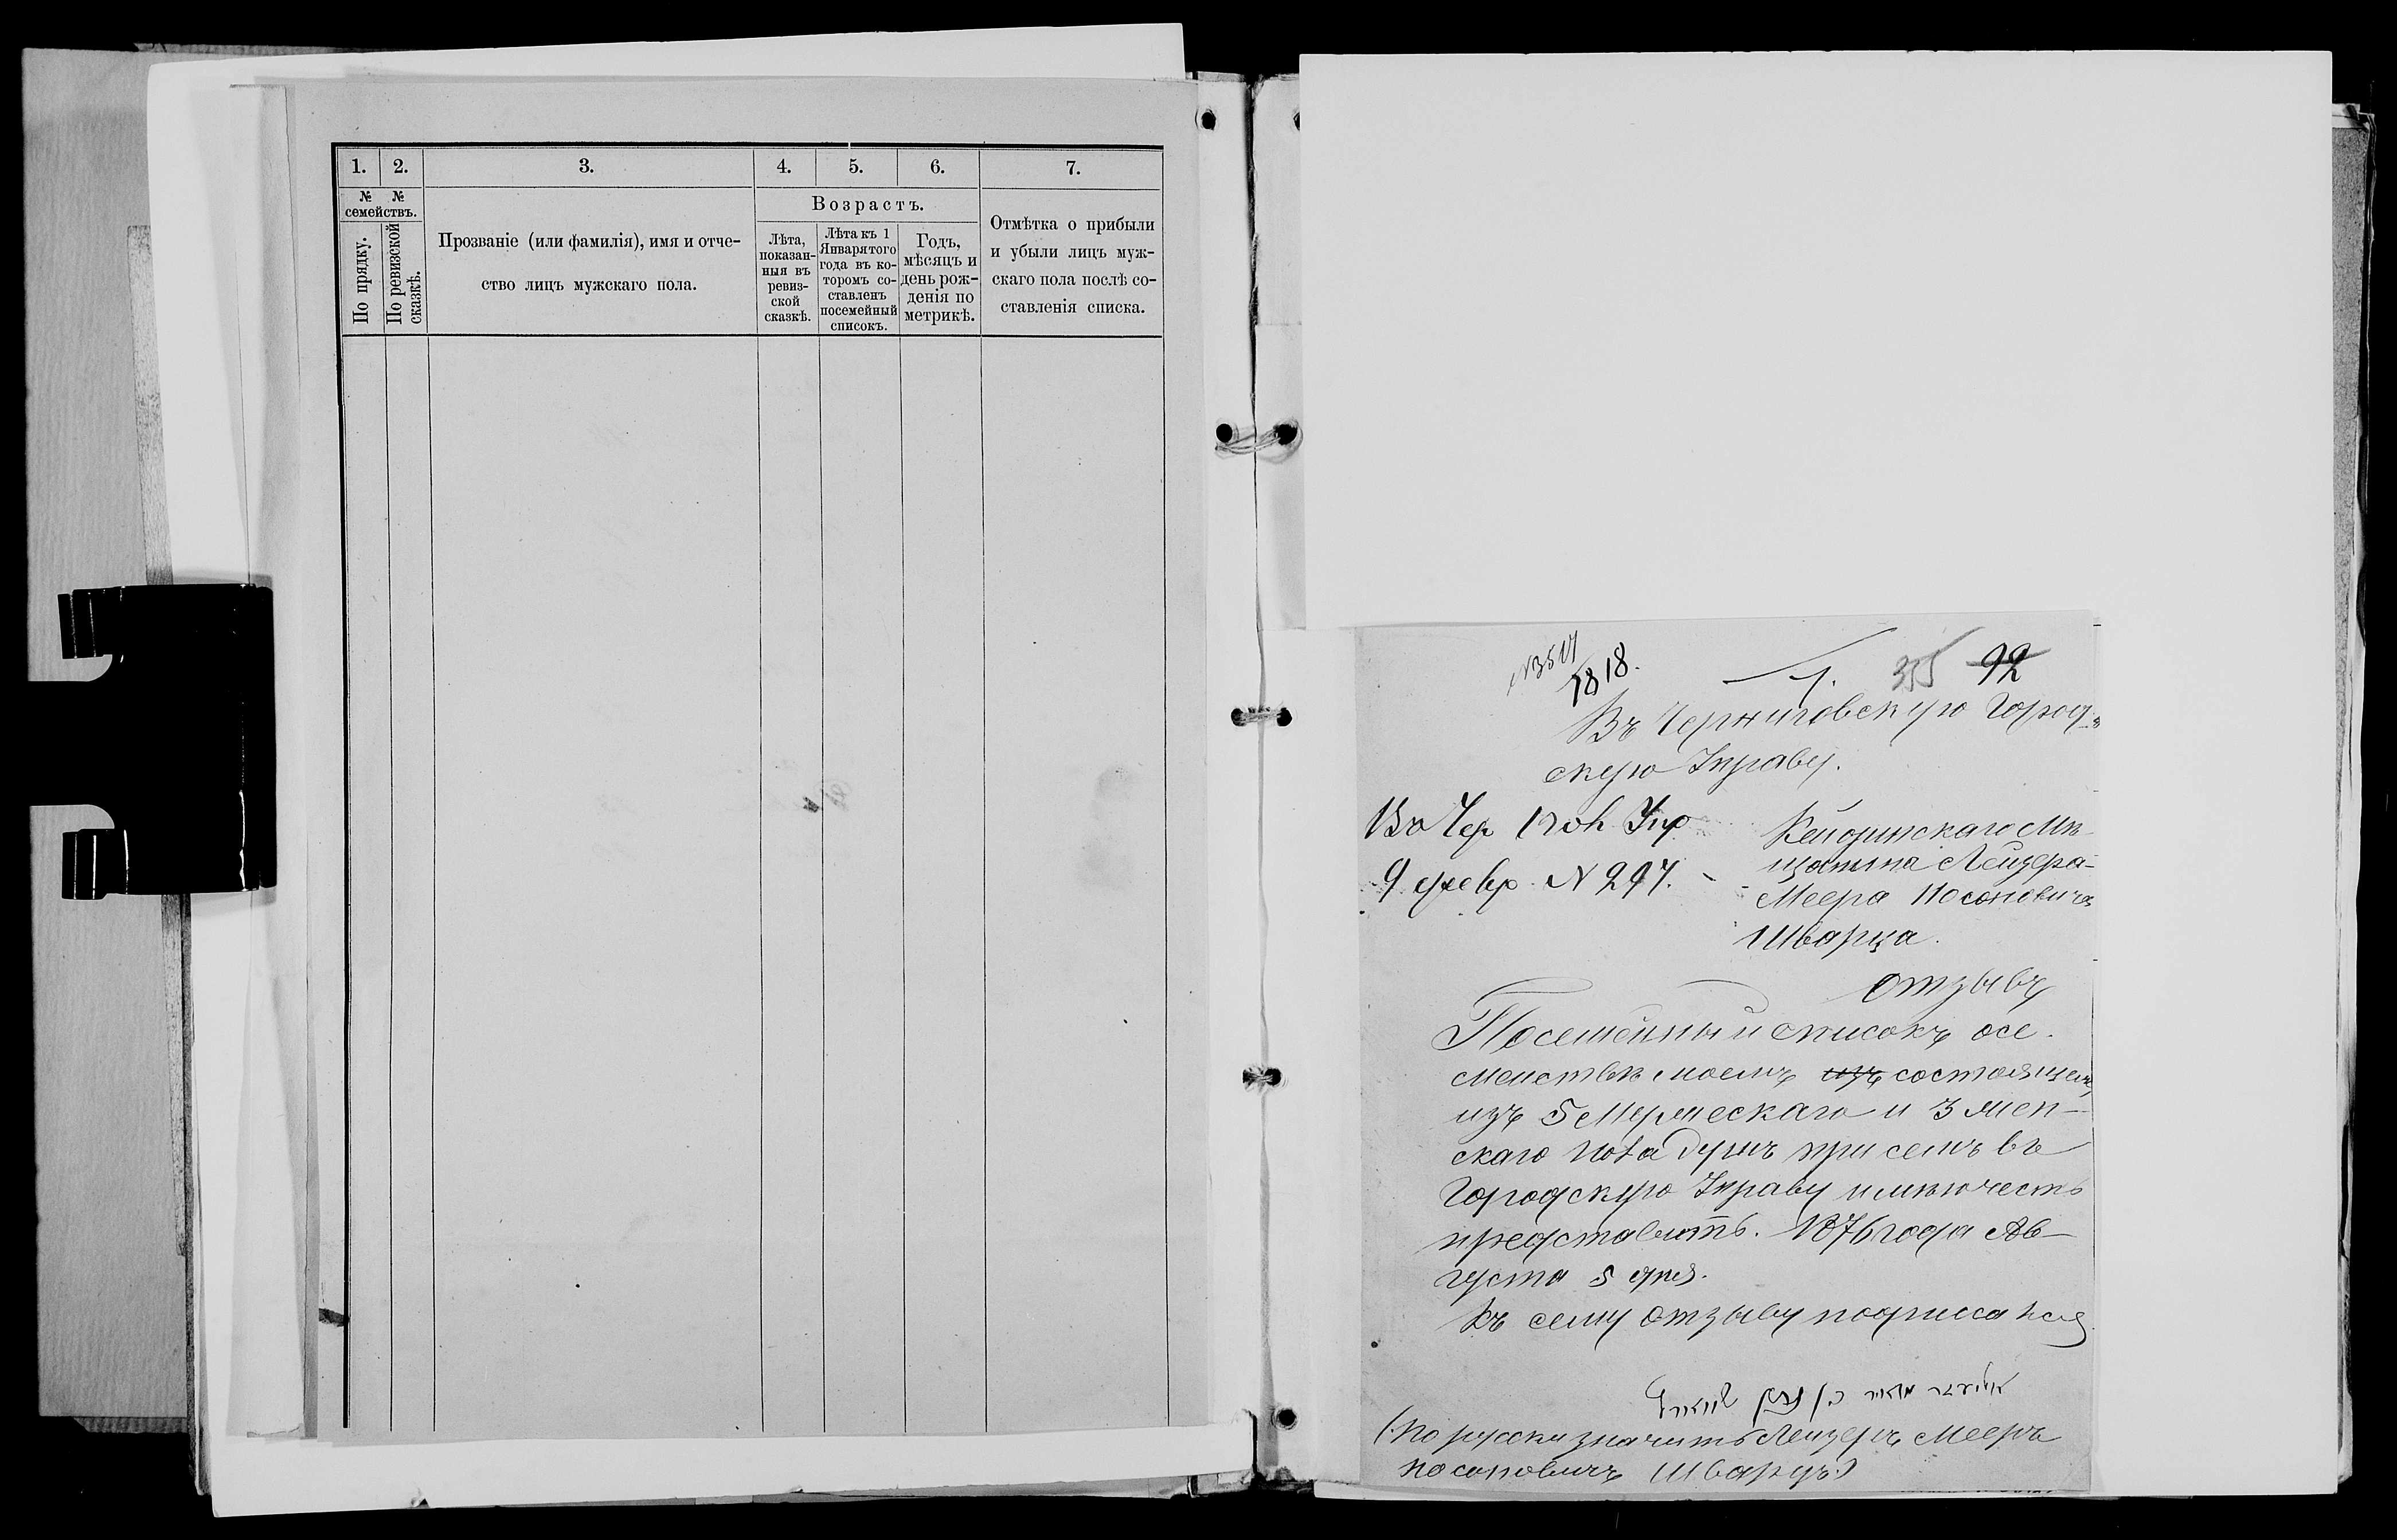 1. 2. 3. 4. 5. 6. 7.
№ № семействъ.
По прядку.
По ревизской сказкѣ.
Прозваніе (или фамилія), имя и отче-
ство лицъ мужскаго пола.
Возрастъ.
Лѣта, показан-ныя въ ревиз-ской сказкѣ.
Лѣта къ 1 Январятого года въ ко-торомъ со-ставленъ посемейный списокъ.
Годъ, мѣсяцъ и день рож-денія по метрикѣ.
Отмѣтка о прибыли
и убыли лицъ муж-
скаго пола послѣ со-
ставленія списка.
1818.
355 92
Въ Черниговскую Город-
скую Управу.
Въ Чер Упр
9 февр. N 297.
Мѣ-
щанина Лейзера-
Меера Носоновича
Шварца.
отзывъ
Посемейный списокъ о се-
мействѣ моемъ изъ состоящемъ
изъ 5 Мужескаго и 3 жен-
скаго пола душъ при семъ въ
Городскую Управу имѣю честь
представить. 1876 года Ав-
густа 5 дня.
Къ сему отзыву подписался
מאיר בן נתן שווארץ
(По русски значитъ Лейзеръ Мееръ
Носоновичъ Шварцъ)